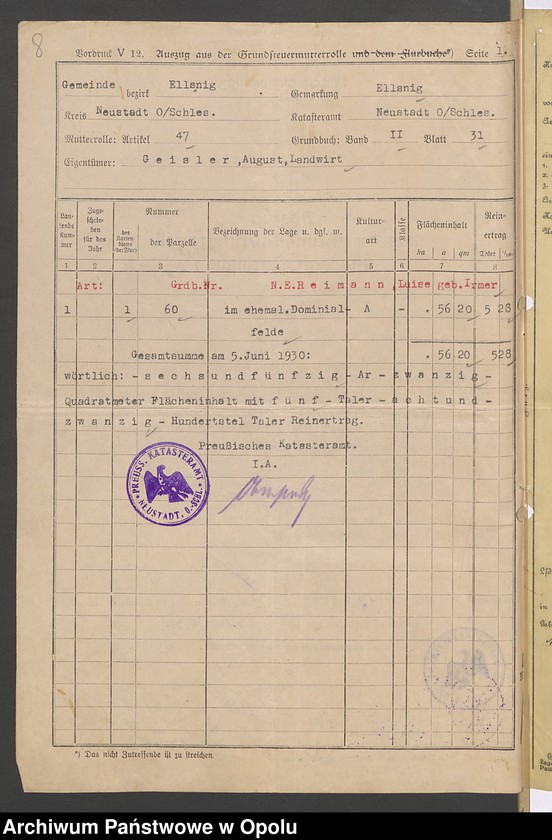 8
Vordruck V 12. Auszug aus der Grundsteuermutterrolle und dem Flurbuche*) Seite 1.
Gemeinde bezirk Ellsnig
Gemarkung Ellsnig
Kreis Neustadt O/Schles.
Katasteramt Neustadt O/Schles.
Mutterrolle: Artikel 47
Grundbuch: Band II Blatt 31
Eigentümer: Geisler, August, Landwirt
Lau-
fende
Num-
mer
Zuge-
schrie-
ben
für das
Jahr
Nummer
des
Karten-
blattes
der Parzelle
Bezeichnung der Lage u. dgl. m.
Kultur-
art
Klasse
Flächeninhalt
ha a qm
Rein-
ertrag
Taler
1 2 3 4 5 6 7 8
Art: Grdb.Nr. N.E.Reimann, Luise geb.Irmer
1 1 60 im ehemal.Dominial- A - . 56 20 5 28
felde
Gesamtsumme am 5.Juni 1930: . 56 20 528
wörtlich: - sechsundfünfzig - Ar - zwanzig -
Quadratmeter Flächeninhalt mit fünf - Taler - achtund -
zwanzig - Hundertstel Taler Reinertrag.
Preußisches Katasteramt.
I.A.
PREUSS. KATASTERAMT
NEUSTADT, O.-SCHL.
*) Das nicht Zutreffende ist zu streichen.
Archiwum Państwowe w Opolu